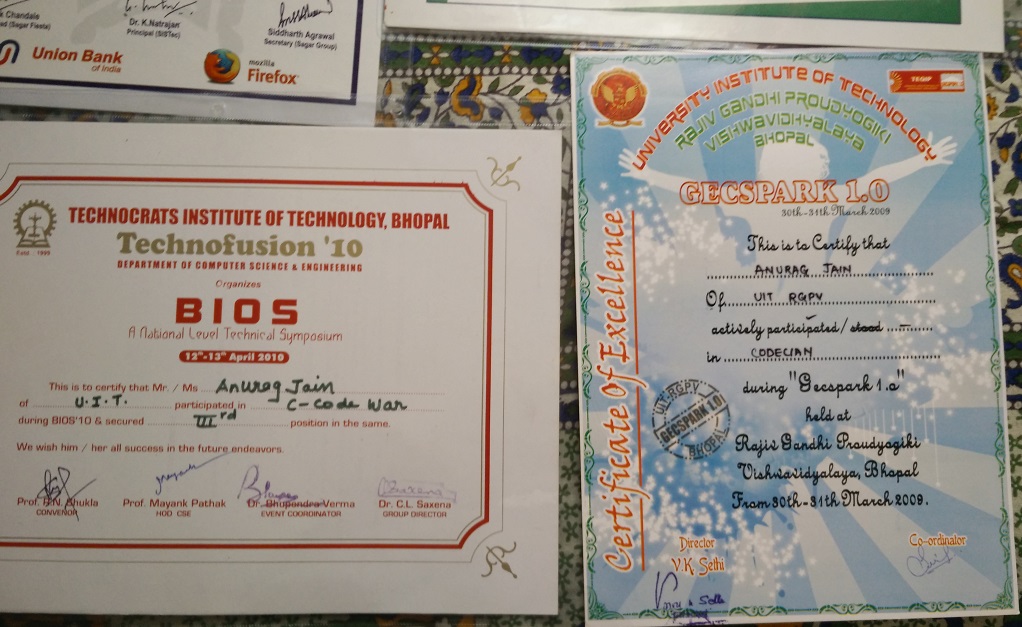 Chandale
Dr. K.Natrajan
Principal (SISTec)
Siddharth Agrawal
Secretary (Sagar Group)
(Sagar Fiesta)
Union Bank
of India
mozilla
Firefox
TECHNOCRATS INSTITUTE OF TECHNOLOGY, BHOPAL
Technofusion '10
DEPARTMENT OF COMPUTER SCIENCE & ENGINEERING
Estd. 1999
Organizes
BIOS
A National Level Technical Symposium
12th-13th April 2010
This is to certify that Mr. / Ms Anurag Jain
of U.I.T. participated in C-Code War
during BIOS'10 & secured IIIrd position in the same.
We wish him / her all success in the future endeavors.
Prof. Shukla
CONVENOR
Prof. Mayank Pathak
HOD CSE
Dr. Bhupendra Verma
EVENT COORDINATOR
Dr. C.L. Saxena
GROUP DIRECTOR
UNIVERSITY INSTITUTE OF TECHNOLOGY
RAJIV GANDHI PROUDYOGIKI
VISHWAVIDHYALAYA
BHOPAL
TEQIP
GECSPARK 1.0
30th-31th March 2009
Certificate Of Excellence
This is to Certify that
ANURAG JAIN
Of UIT RGPV
actively participated/ stood
in CODECIAN
during "Gecspark 1.0"
held at
Rajiv Gandhi Proudyogiki
Vishwavidyalaya, Bhopal
From 30th-31th March 2009.
UIT-RGPV
GECSPARK 1.0
BHOPAL
Director
V.K Sethi
Co-ordinator